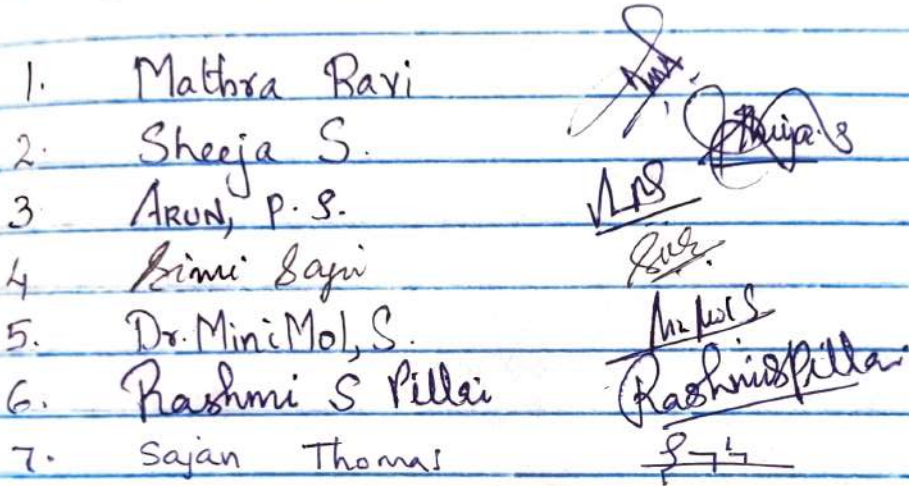 1. Malthra Ravi
2. Sheeja S. Sheeja.S
3 ARUN, P.S.
4 Simi Saji
5. Dr. MiniMol, S. Mi Mol S
6. Rashmi S Pillai Rashmi S Pillai
7. Sajan Thomas